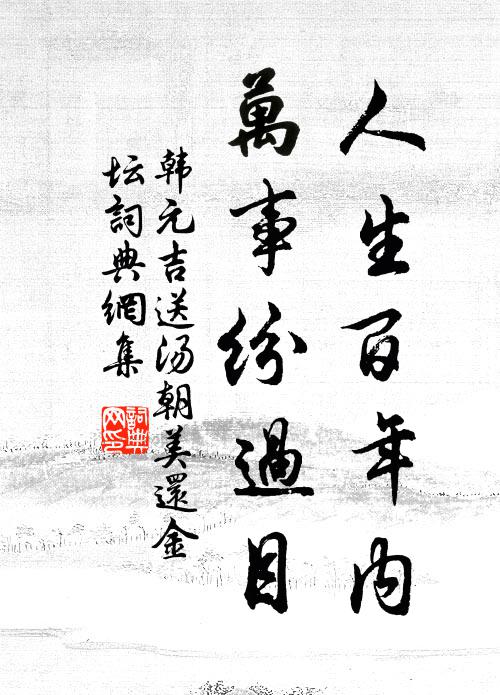 人生百年内
萬事纷過目
韩元吉送汤朝美還金
坛詞典網集
詞典
网印